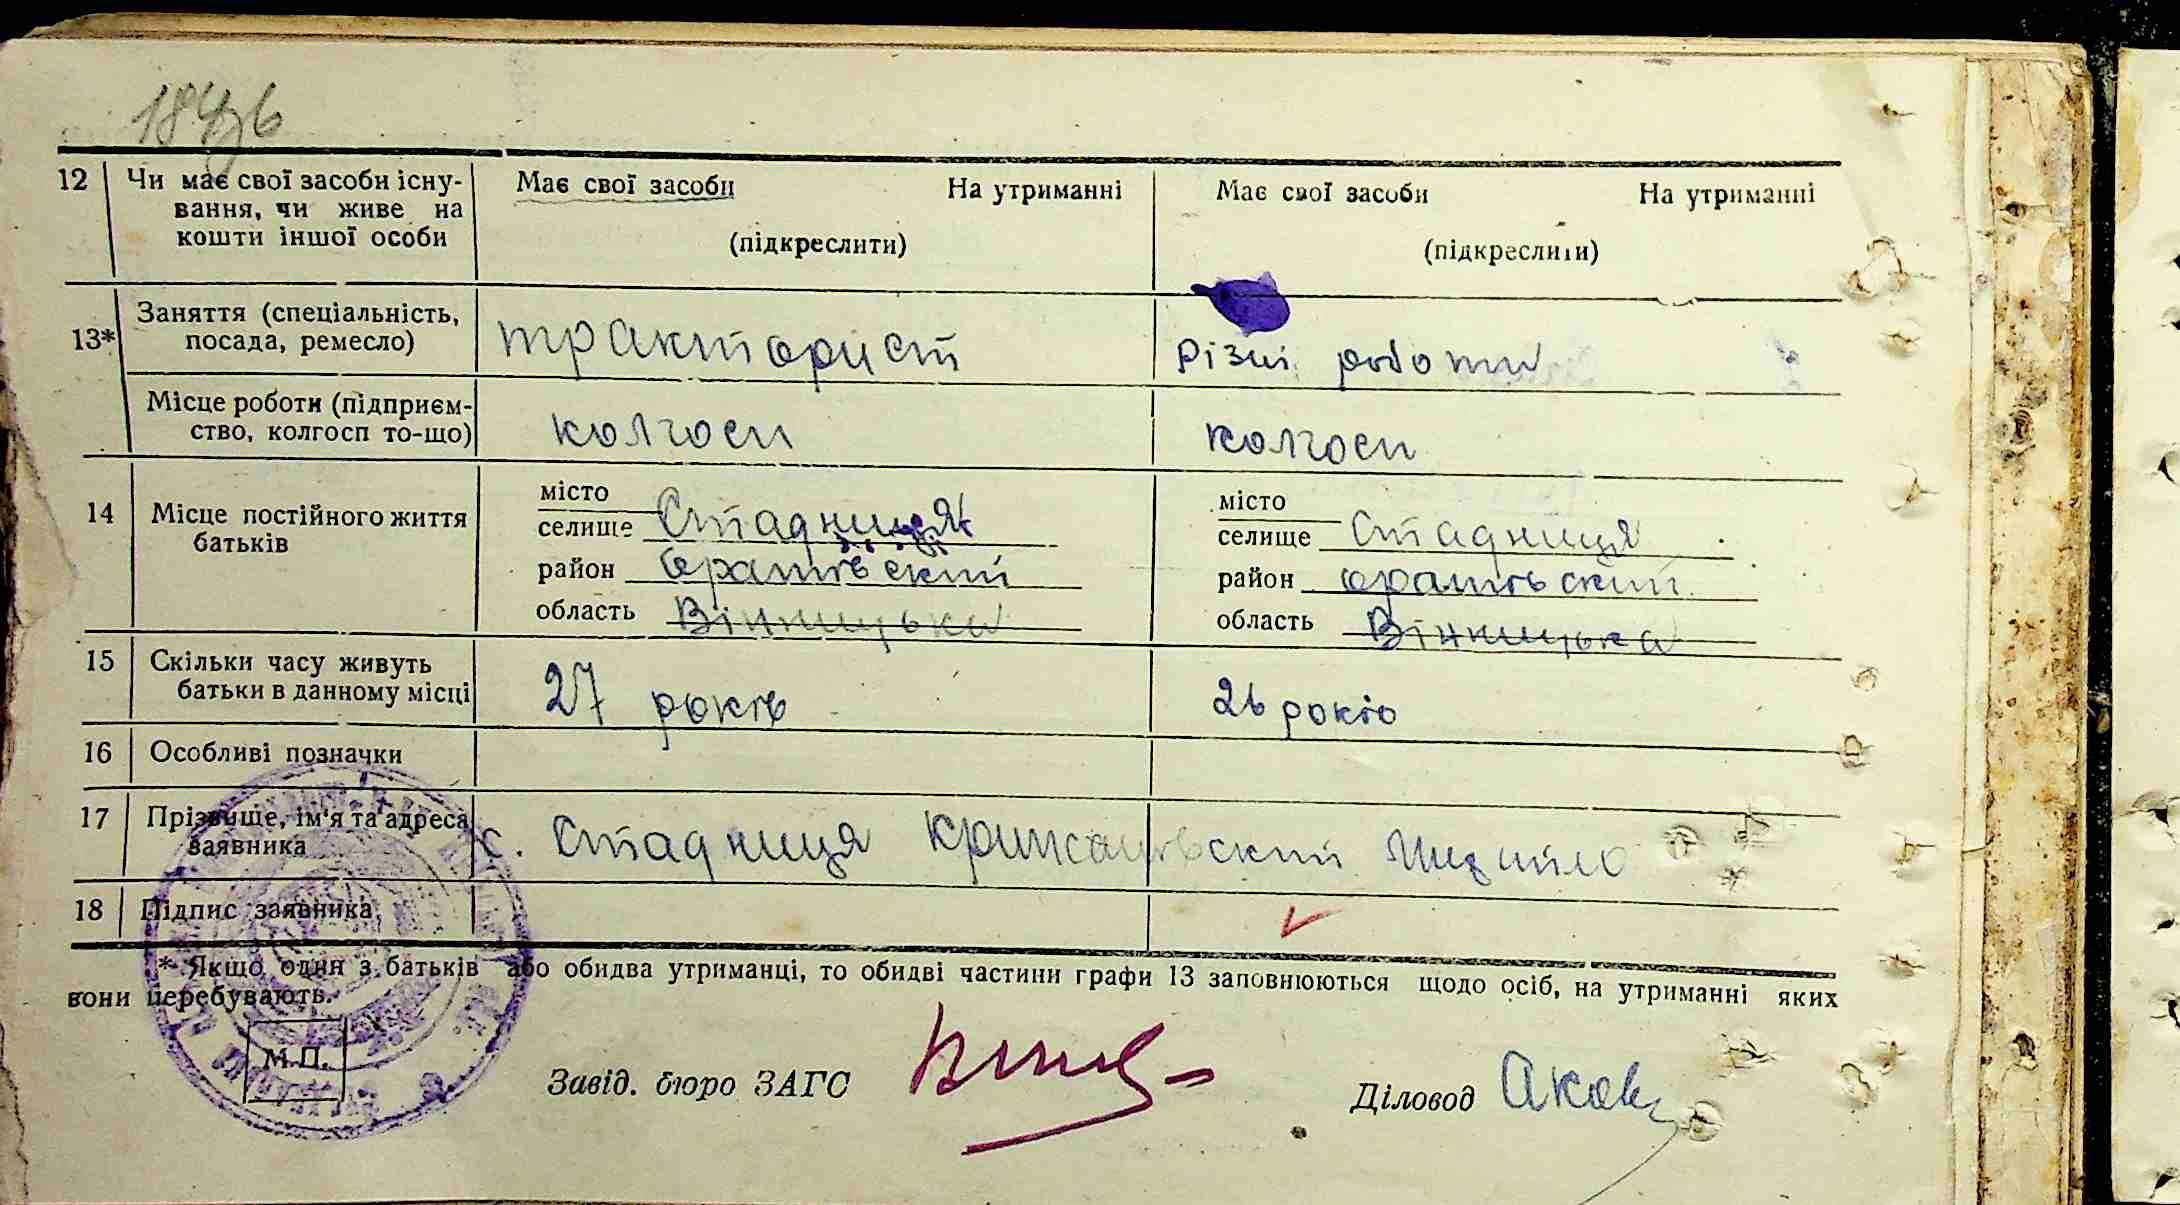 184зв
12 Чи має свої засоби існу- Має свої засоби На утриманні Має свої засоби На утриманні
вання, чи живе на
кошти іншої особи (підкреслити) (підкреслити)
13* Заняття (спеціальність, тракторист різні роботи
посада, ремесло)
Місце роботи (підприєм- колгосп колгосп
ство, колгосп то-що)
місто місто
14 Місце постійного життя селище Стадниця селище Стадниця
батьків район Оратівский район оратівский
область Вінницька область Вінницька
15 Скільки часу живуть 27 років 26 років
батьки в данному місці
16 Особливі позначки
17 Прізвище, ім'я та адреса с. Стадниця Крижанівский Михайло
заявника
18 Підпис заявника
* Якщо один з батьків або обидва утриманці, то обидві частини графи 13 заповнюються щодо осіб, на утриманні яких
вони перебувають.
М.П.
Завід. бюро ЗАГС Діловод